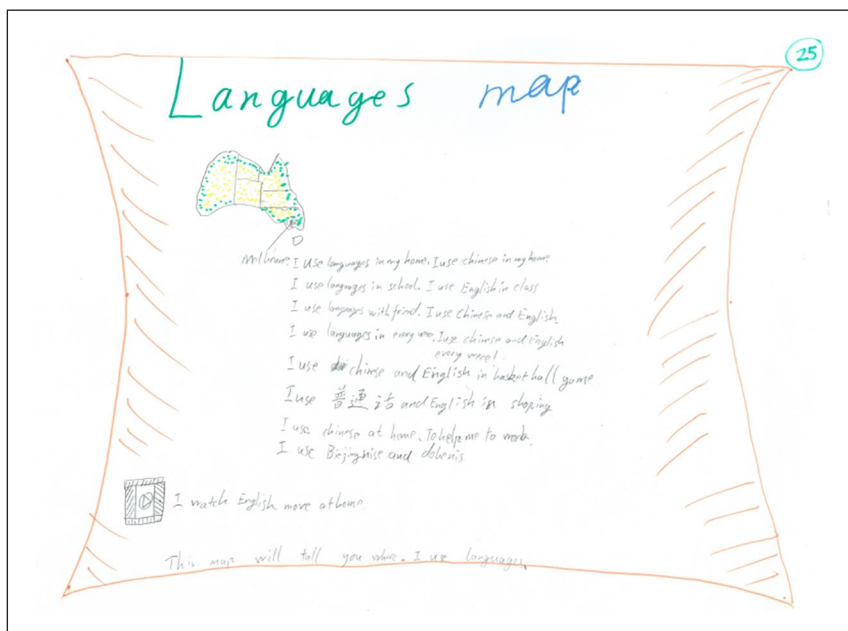 25
Languages map
Melburne. I use languages in my home. I use chinese in my home
I use languages in school. I use English in class
I use languages with friend. I use chinese and English.
I use languages in every . I use chinese and English
every
I use chinese and English in basketball game
I use 普通话 and English in shoping
I use chinese at home. To help me to work.
I use and
I watch English move at home
This map will tall you where. I use languages.